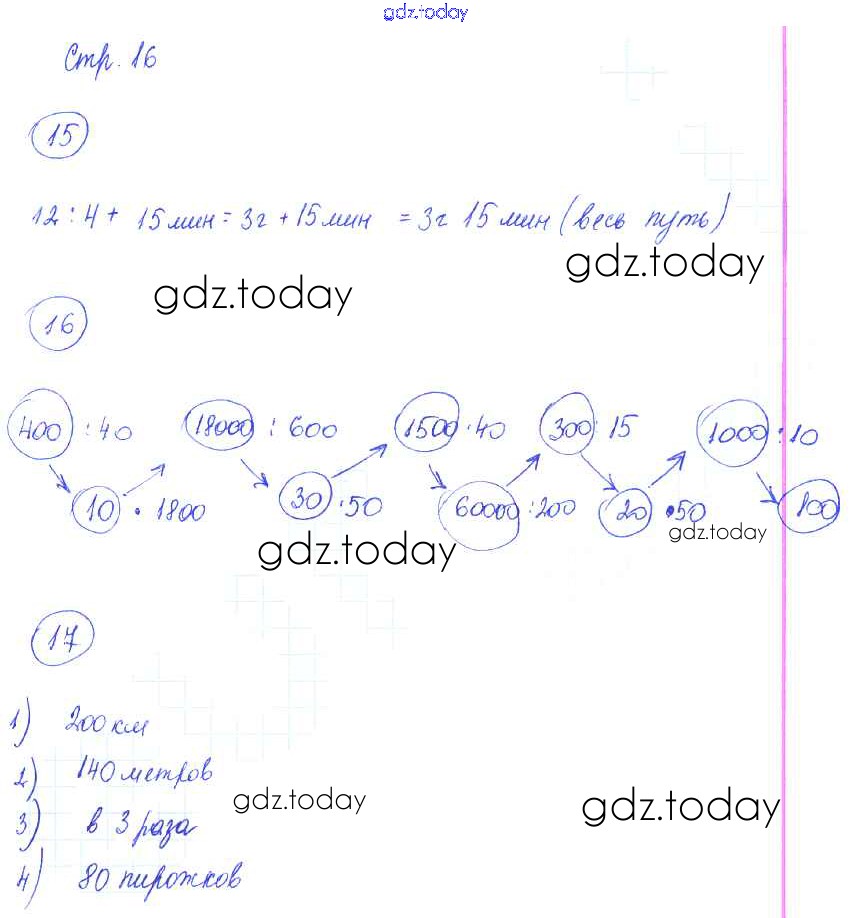 gdz.today
Стр. 16
15
12 : 4 + 15 мин = 3г + 15 мин = 3г 15 мин (весь путь)
gdz.today
gdz.today
16
400 : 40 18000 : 600 1500 · 40 300 : 15 1000 : 10
10 · 1800 30 · 50 60000 : 200 20 · 50 100
gdz.today
gdz.today
17
1) 200 км
2) 140 метров
gdz.today
gdz.today
3) в 3 раза
4) 80 пирожков